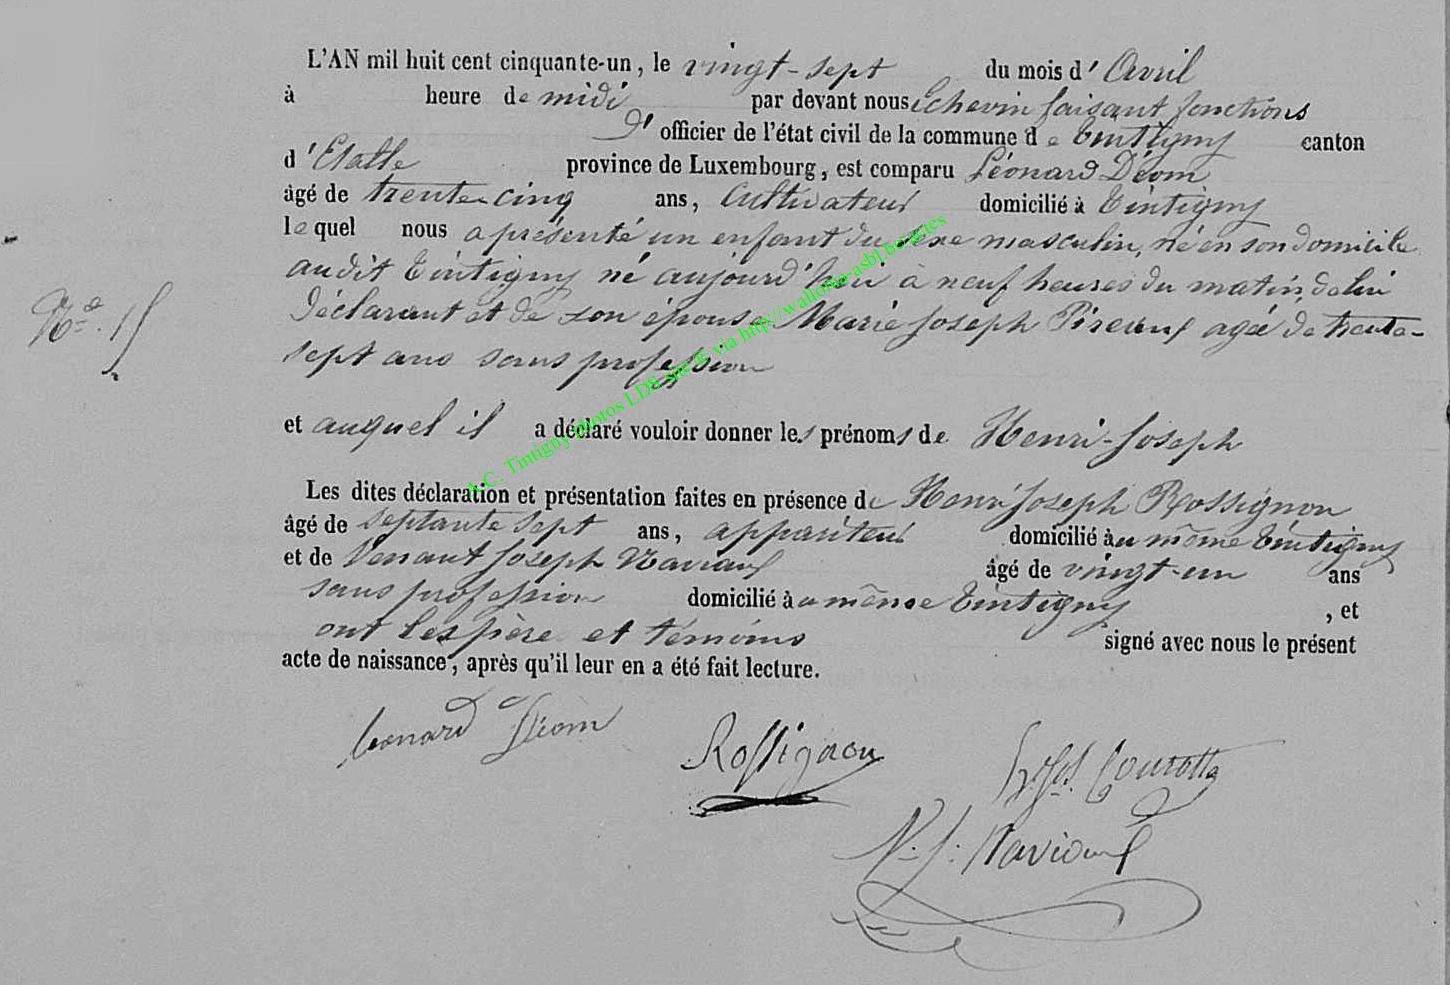 L'AN mil huit cent cinquante-un, le vingt-sept du mois d' Avril
à heure de midi par devant nous Echevin faisant fonctions
d' officier de l'état civil de la commune de Tintigny canton
d' Etalle province de Luxembourg, est comparu Léonard Déom
âgé de trente-cinq ans, Cultivateur domicilié à Tintigny
lequel nous a présenté un enfant du sexe masculin, né en son domicile
audit Tintigny né aujourd'hui à neuf heures du matin, de lui
déclarant et de son épouse Marie Joseph agée de trente-
sept ans sans profession
et auquel il a déclaré vouloir donner les prénoms de Henri-Joseph
Les dites déclaration et présentation faites en présence de Henri Joseph Rossignon
âgé de septante sept ans, appariteur domicilié au même Tintigny
et de Venant Joseph Naviaux âgé de vingt-un ans
sans profession domicilié au même Tintigny, et
ont les père et témoins signé avec nous le présent
acte de naissance, après qu'il leur en a été fait lecture.
Leonard Déom
Rossignon
V. J. Naviaux
A.C. Tintigny photos LDS via http://wallonia-asbl.be/actes